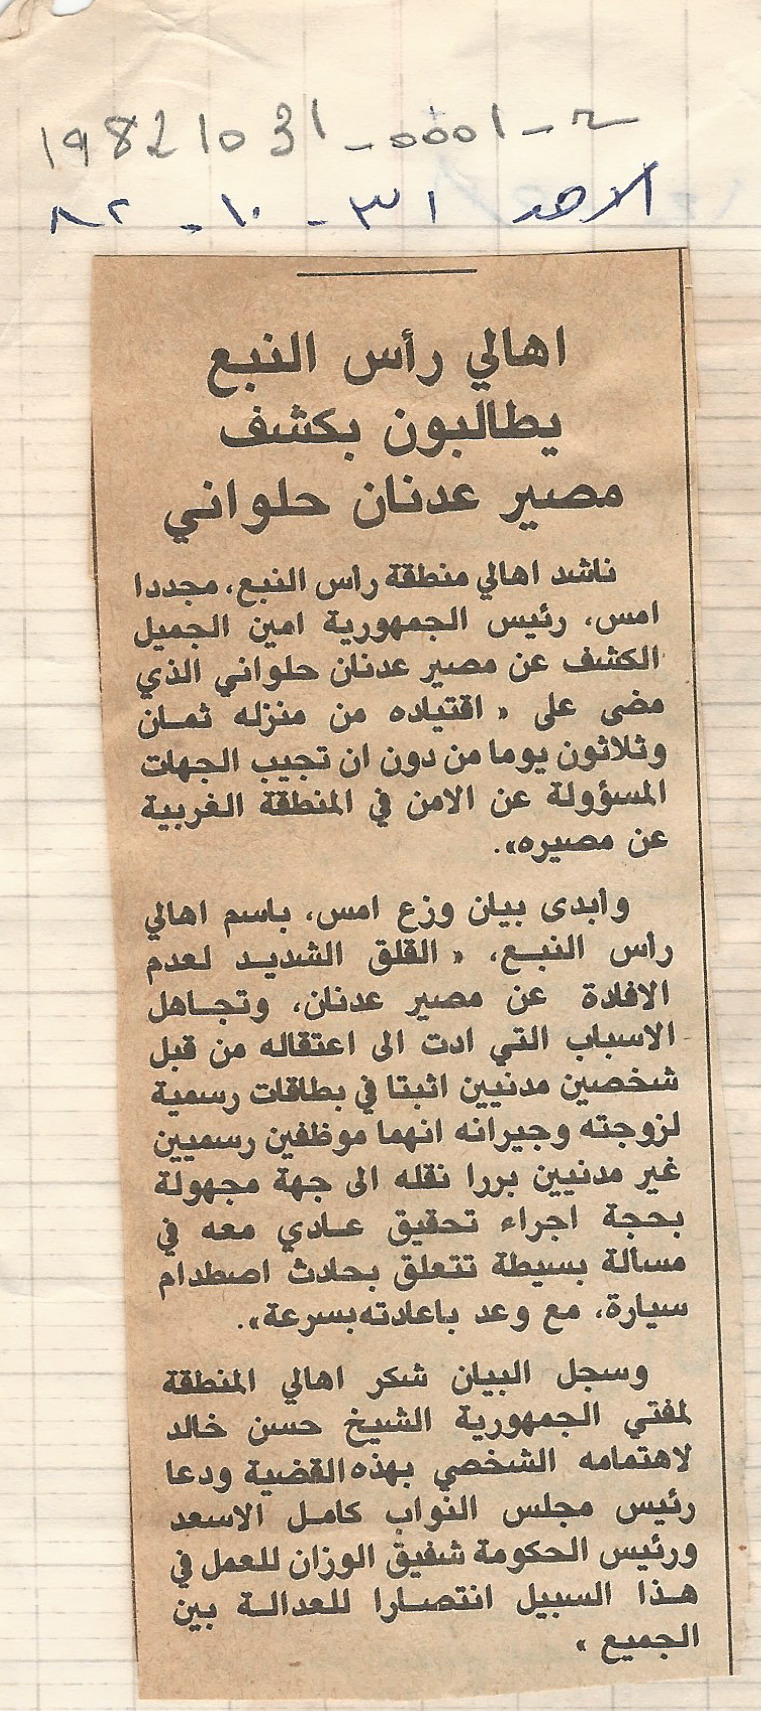 19821031-0001-
الاحد ٣١ - ١٠ - ٨٢
اهالي رأس النبع
يطالبون بكشف
مصير عدنان حلواني
ناشد اهالي منطقة رأس النبع، مجددا
امس، رئيس الجمهورية امين الجميل
الكشف عن مصير عدنان حلواني الذي
مضى على « اقتياده من منزله ثمـان
وثلاثون يوما من دون ان تجيب الجهات
المسؤولة عن الامن في المنطقة الغربية
عن مصيره».
وأبدى بيان وزع امس، باسم اهالي
رأس النبـع، « القلق الشديـد لعدم
الافادة عن مصير عدنان، وتجـاهل
الاسباب التي ادت الى اعتقاله من قبل
شخصين مدنيين اثبتا في بطاقات رسمية
لزوجته وجيرانه انهما موظفين رسميين
غير مدنيين بررا نقله الى جهة مجهولة
بحجة اجراء تحقيق عـادي معه في
مسألة بسيطة تتعلق بحادث اصطدام
سيارة، مع وعد باعادته بسرعة».
وسجل البيان شكر اهالي المنطقة
لمفتي الجمهورية الشيخ حسن خالد
لاهتمامه الشخصي بهذه القضية ودعا
رئيس مجلس النواب كامـل الاسعد
ورئيس الحكومة شفيق الوزان للعمل في
هـذا السبيل انتصـارا للعدالـة بين
الجميع »